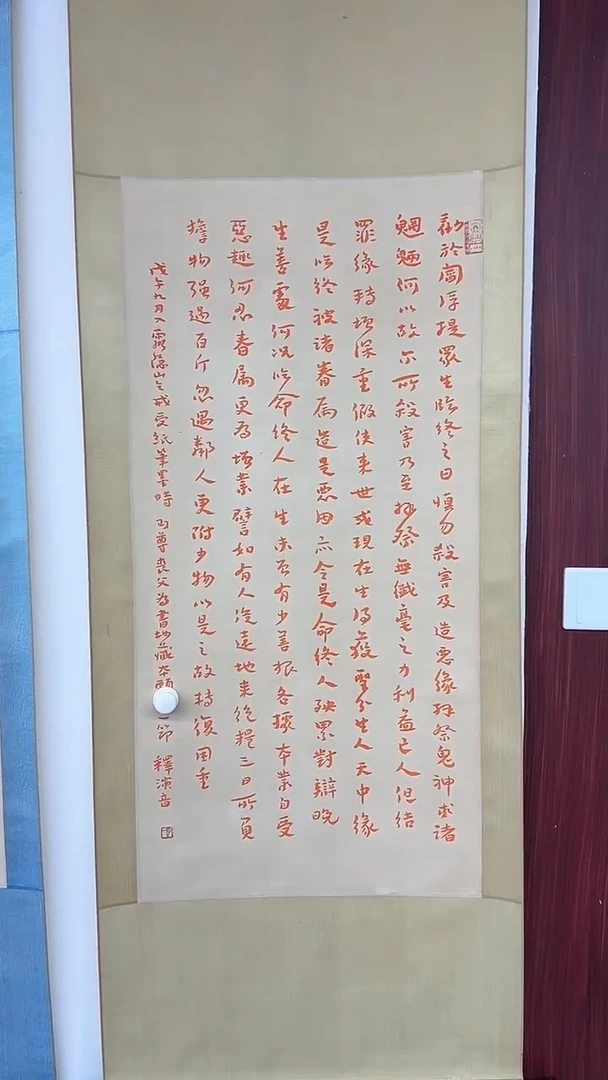 勸於閻浮提眾生臨終之日慎勿殺害及造惡緣拜祭鬼神求諸
魍魎何以故尔所殺害乃至拜祭無纖毫之力利益亡人但結
罪緣轉增深重假使來世或現在生得獲聖分生人天中緣
是臨終被諸眷屬造是惡因亦令是命終人殃累對辯晚
生善處何況臨命終人在生未曾有少善根各據本業自受
惡趣何忍眷屬更為增業譬如有人從遠地來絕糧三日所負
擔物强過百斤忽遇鄰人更附少物以是之故轉復困重
戊午九月入靈隱山乞戒受紙筆墨時丏尊喪父為書地藏本願一節 釋演音